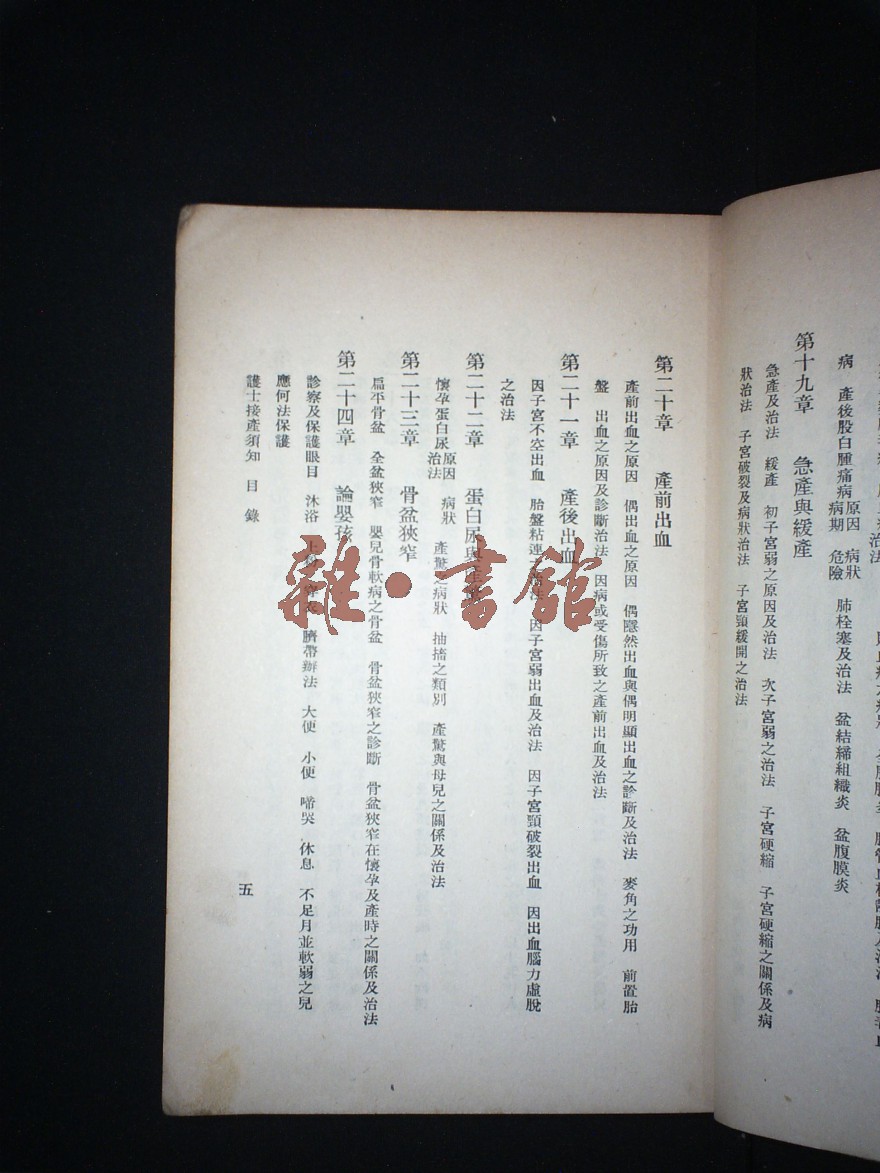 病　產後股白腫痛病原因病期　病狀危險　肺栓塞及治法　盆結締組織炎　盆腹膜炎
第十九章　急產與緩產
急產及治法　緩產　初子宮弱之原因及治法　次子宮弱之治法　子宮硬縮　子宮硬縮之關係及病
狀治法　子宮破裂及病狀治法　子宮頸緩開之治法
第二十章　產前出血
產前出血之原因　偶出血之原因　偶隱然出血與偶明顯出血之診斷及治法　麥角之功用　前置胎
盤　出血之原因及診斷治法　因病或受傷所致之產前出血及治法
第二十一章　產後出血
因子宮不空出血　胎盤粘連之治法　因子宮弱出血及治法　因子宮頸破裂出血　因出血腦力虛脫
之治法
第二十二章　蛋白尿與產驚
懷孕蛋白尿原因治法　病狀　產驚之病狀　抽搐之類別　產驚與母兒之關係及治法
第二十三章　骨盆狹窄
扁平骨盆　全盆狹窄　嬰兒骨軟病之骨盆　骨盆狹窄之診斷　骨盆狹窄在懷孕及產時之關係及治法
第二十四章　論嬰孩
診察及保護眼目　沐浴　穿衣　臍帶辦法　大便　小便　啼哭　休息　不足月並軟弱之兒
應何法保護
護士接產須知　目錄
五
雜·書館